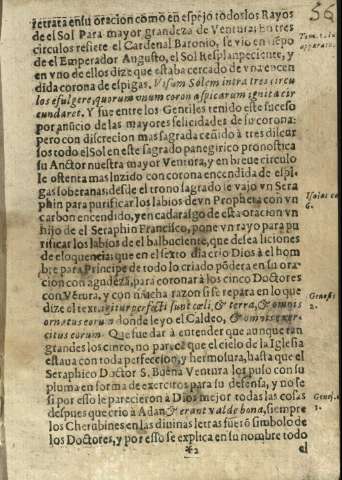 56
retrata en su oracion como en espejo todos los Rayos
de el Sol Para mayor grandeza de Ventura; En tres
circulos refiere el Cardenal Baronio, se vio en tiēpo
de el Emperador Augusto, el Sol Resplandeciente, y
en vno de ellos dize que estaba cercado de vna encen
dida corona de espigas. Visum Solem intra tres circu
los efulgere, quorum unum corona spicarum ignita cir
cundaret. Y fue entre los Gentiles tenido este suceso
por anūcio de las mayores felicidades de su corona:
pero con discrecion mas sagrada ceñido à tres discur
los todo el Sol en este sagrado panegirico pronostica
su Auctor nuestra mayor Ventura, y en breue circulo
le ostenta mas luzido con corona encendida de espi-
gas soberanas; desde el trono sagrado le vajo vn Sera
phin para purificar los labios de vn Propheta con vn
carbon encendido, y en cada rasgo de esta oration vn
hijo de el Seraphin Francisco, pone vn rayo para pu
rificar los labios de el balbuciente, que desea liciones
de eloquencia; que en el sexto dia crio Dios à el hom
bre para Principe de todo lo criado põdera en su ora
cion con agudeza, para coronar à los cinco Doctores
con Vētura, y con mucha razon si se repara en lo que
dize el text. igitur perfecti sunt cœli, & terra, & omnis
ornatus eorum donde leyo el Caldeo, & omnis exer-
citus eorum Que fue dar à entender que aunque tan
grandes los cinco, no parece que el cielo de la Iglesia
estaua con toda perfeccion, y hermosura, hasta que el
Seraphico Doctor S. Buena Ventura les puso con su
pluma en forma de exercitos para su defensa, y no se
si por esso le parecieron à Dios mejor todas las cosas
despues que crio à Adan & erant valde bona, siempre
los Cherubines en las diuinas letras fuerō simbolo de
los Doctores, y por esso se explica en su nombre todo
*2 el
Tom. 1. in
apparato.
Isaias ca
6.
Genes.
2.
Genes.